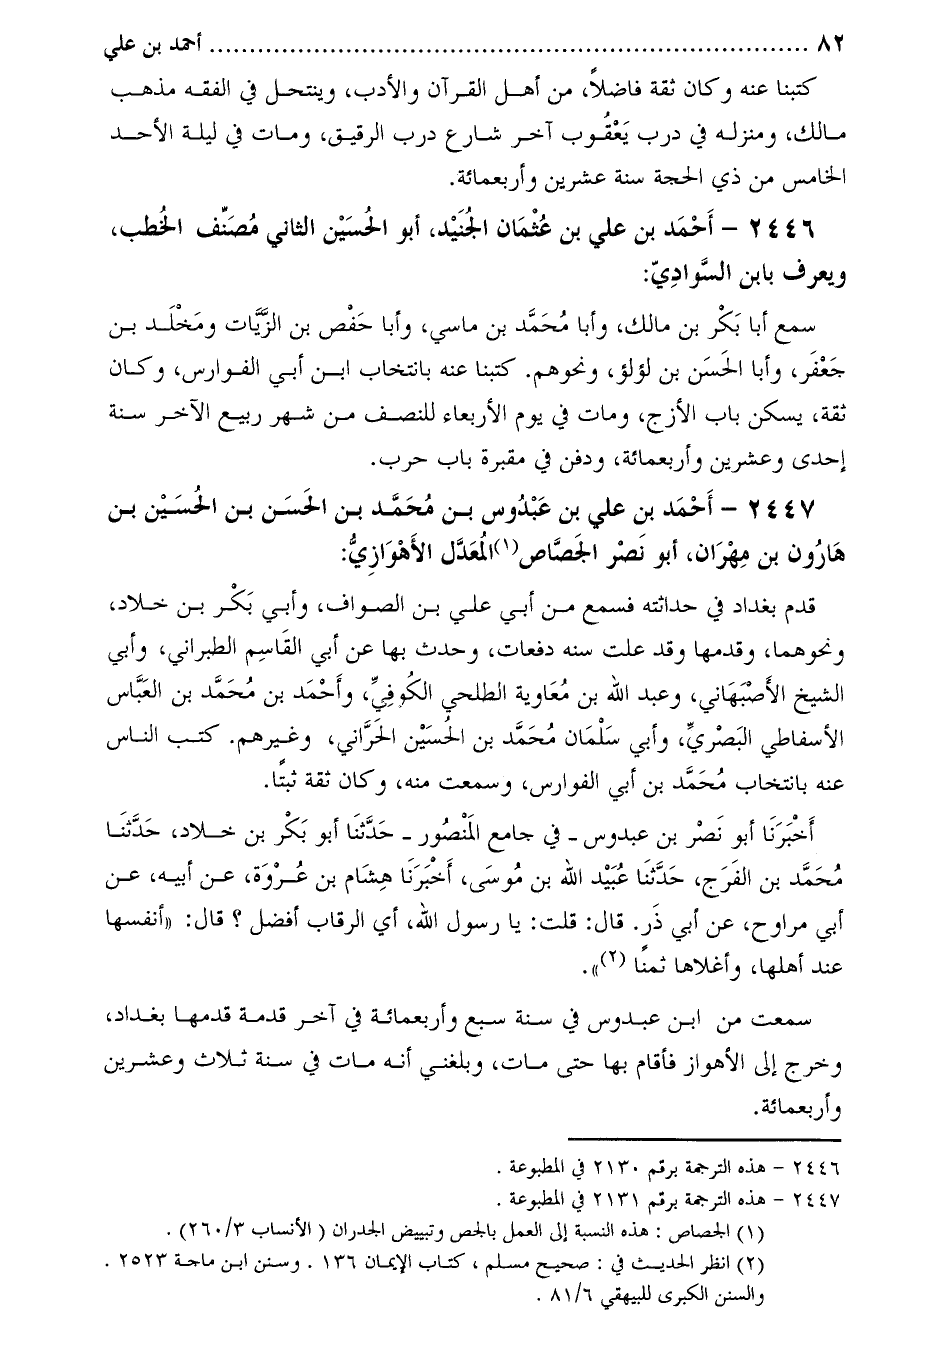 ٨٢ ........................................................................... أحمد بن علي
كتبنا عنه وكان ثقة فاضلاً، من أهل القرآن والأدب، وينتحل في الفقه مذهب
مالك، ومنزله في درب يَعْقُوب آخر شارع درب الرقيق، ومات في ليلة الأحد
الخامس من ذي الحجة سنة عشرين وأربعمائة.
٢٤٤٦ – أَحْمَد بن علي بن عُثْمان الجُنَيْد، أبو الحُسَيْن الثاني مُصَنِّف الخُطب،
ويعرف بابن السَّوادِيّ:
سمع أبا بَكْر بن مالك، وأبا مُحَمَّد بن ماسي، وأبا حَفْص بن الزَّيَّات ومَخْلَد بن
جَعْفَر، وأبا الحَسَن بن لؤلؤ، ونحوهم. كتبنا عنه بانتخاب ابن أبي الفوارس، وكان
ثقة، يسكن باب الأزج، ومات في يوم الأربعاء للنصف من شهر ربيع الآخر سنة
إحدى وعشرين وأربعمائة، ودفن في مقبرة باب حرب.
٢٤٤٧ – أَحْمَد بن علي بن عَبْدُوس بن مُحَمَّد بن الحَسَن بن الحُسَيْن بن
هَارُون بن مِهْرَان، أبو نَصْر الجَصَّاص(١) المُعَدَّل الأَهْوَازِيُّ:
قدم بغداد في حداثته فسمع من أبي علي بن الصواف، وأبي بَكْر بن خلاد،
ونحوهما، وقدمها وقد علت سنه دفعات، وحدث بها عن أبي القَاسِم الطبراني، وأبي
الشيخ الأَصْبَهَاني، وعبد الله بن مُعَاوية الطلحي الكُوفِيِّ، وأَحْمَد بن مُحَمَّد بن العَبَّاس
الأسفاطي البَصْريِّ، وأبي سَلْمَان مُحَمَّد بن الحُسَيْن الحَرَّاني، وغيرهم. كتب الناس
عنه بانتخاب مُحَمَّد بن أبي الفوارس، وسمعت منه، وكان ثقة ثبتًا.
أَخْبَرَنَا أبو نَصْر بن عبدوس ـ في جامع المَنْصُور ـ حَدَّثَنَا أبو بَكْر بن خلاد، حَدَّثَنَا
مُحَمَّد بن الفَرَج، حَدَّثَنَا عُبَيْد الله بن مُوسَى، أَخْبَرَنَا هِشَام بن عُرْوَة، عن أبيه، عن
أبي مراوح، عن أبي ذَر. قال: قلت: يا رسول الله، أي الرقاب أفضل ؟ قال: «أنفسها
عند أهلها، وأغلاها ثمنًا (٢)».
سمعت من ابن عبدوس في سنة سبع وأربعمائة في آخر قدمة قدمها بغداد،
وخرج إلى الأهواز فأقام بها حتى مات، وبلغني أنه مات في سنة ثلاث وعشرين
وأربعمائة.
٢٤٤٦ – هذه الترجمة برقم ٢١٣٠ في المطبوعة .
٢٤٤٧ – هذه الترجمة برقم ٢١٣١ في المطبوعة .
(١) الجصاص : هذه النسبة إلى العمل بالجص وتبييض الجدران ( الأنساب ٢٦٠/٣) .
(٢) انظر الحديث في : صحيح مسلم ، كتاب الإيمان ١٣٦ . وسنن ابن ماجة ٢٥٢٣ .
والسنن الكبرى للبيهقي ٨١/٦ .